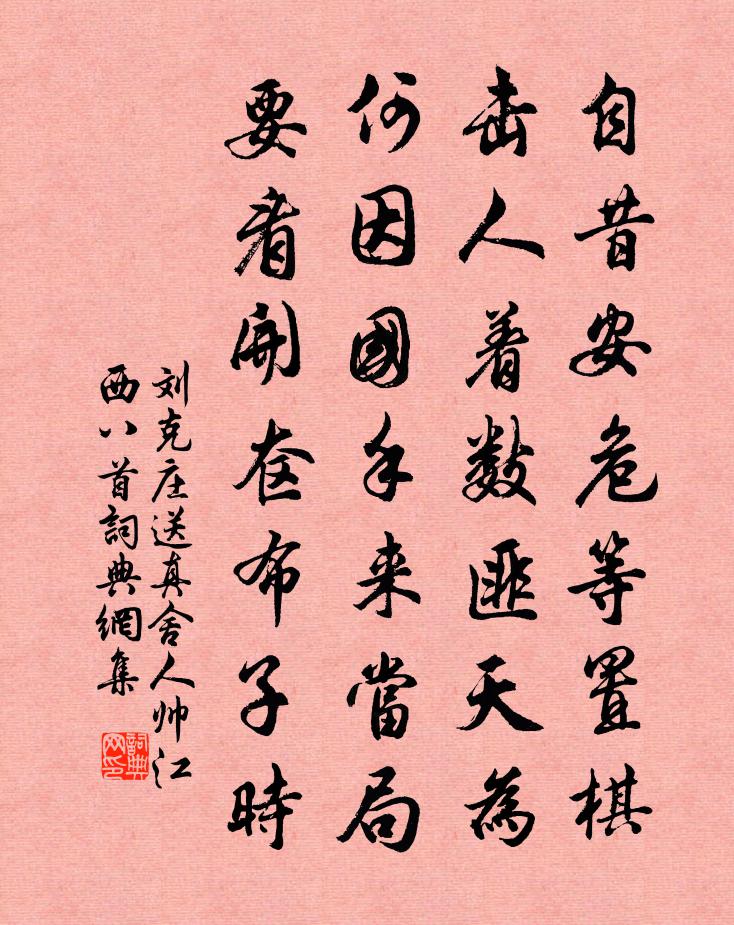 自昔安危等置棋
出人着数匪天為
何因國手来當局
要看開奁布子時
刘克庄送真舍人帅江
西八首詞典網集
詞典
网印